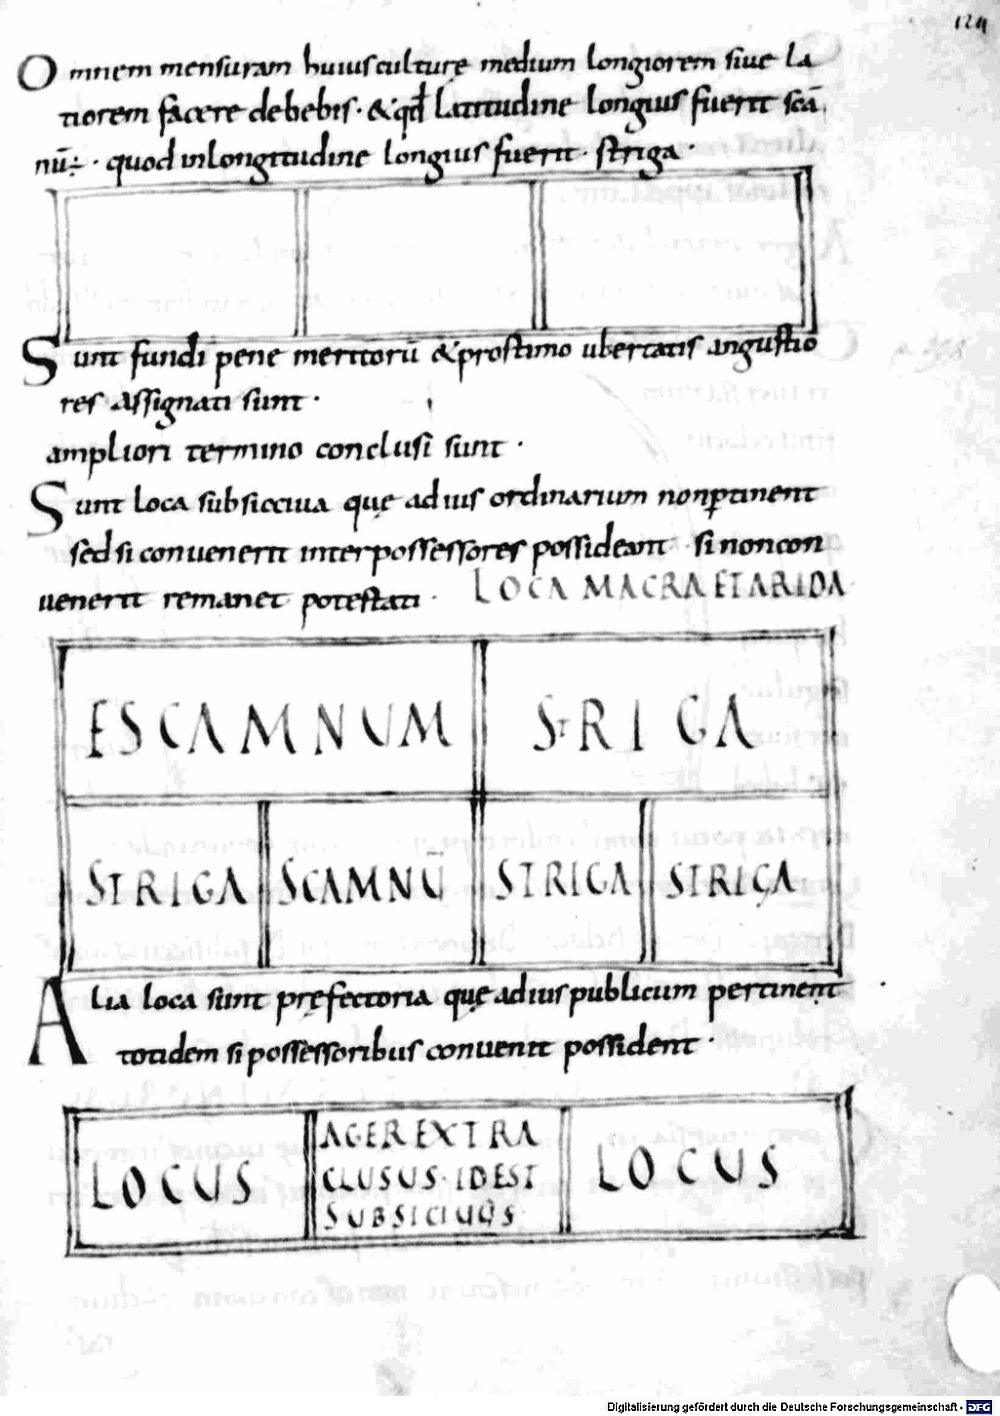 124
Omnem mensuram huius culturę medium longiorem siue la
tiorem facere debebis · & qđ Latitudine longius fuerit scā
nū÷ · quod in longitudine longius fuerit · striga ·
Sunt fundi pene meritorū & prostimo ubertatis angustio
res assignati sunt ·
ampliori termino conclusi sunt ·
Sunt loca subsiciua quę ad ius ordinarium non ꝑtinent
sed si conuenerit inter possessores possideant · si non con
uenerit remanet potestati ·
LOCA MACRA ET ARIDA
ESCAMNUM STRIGA
STRIGA SCAMNŪ STRIGA STRIGA
Alia loca sunt pręfectoria quę ad ius publicum pertinent
totidem si possessoribus conuenit possident ·
LOCUS
AGER EXTRA
CLUSUS · IDEST
SUBSICIUUS
LOCUS
Digitalisierung gefördert durch die Deutsche Forschungsgemeinschaft · DFG